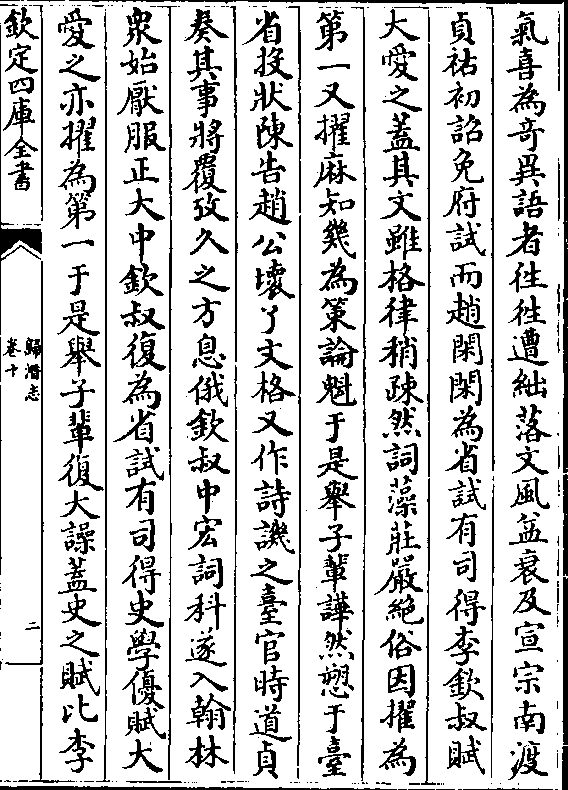 氣喜為奇異語者徃徃遭絀落文風益衰及宣宗南渡
貞祐初詔免府試而趙閑閑為省試有司得李欽叔賦
大愛之蓋其文雖格律稍疎然詞藻莊嚴絶俗因擢為
第一又擢麻知幾為策論魁于是舉子輩譁然愬于臺
省投狀陳告趙公壊了文格又作詩譏之臺官時道貞
奏其事將覆攷久之方息俄欽叔中宏詞科遂入翰林
衆始厭服正大中欽叔復為省試有司得史學優賦大
愛之亦擢為第一于是舉子輩復大譟蓋史之賦比李
欽定四庫全書
歸潛志
卷十
二